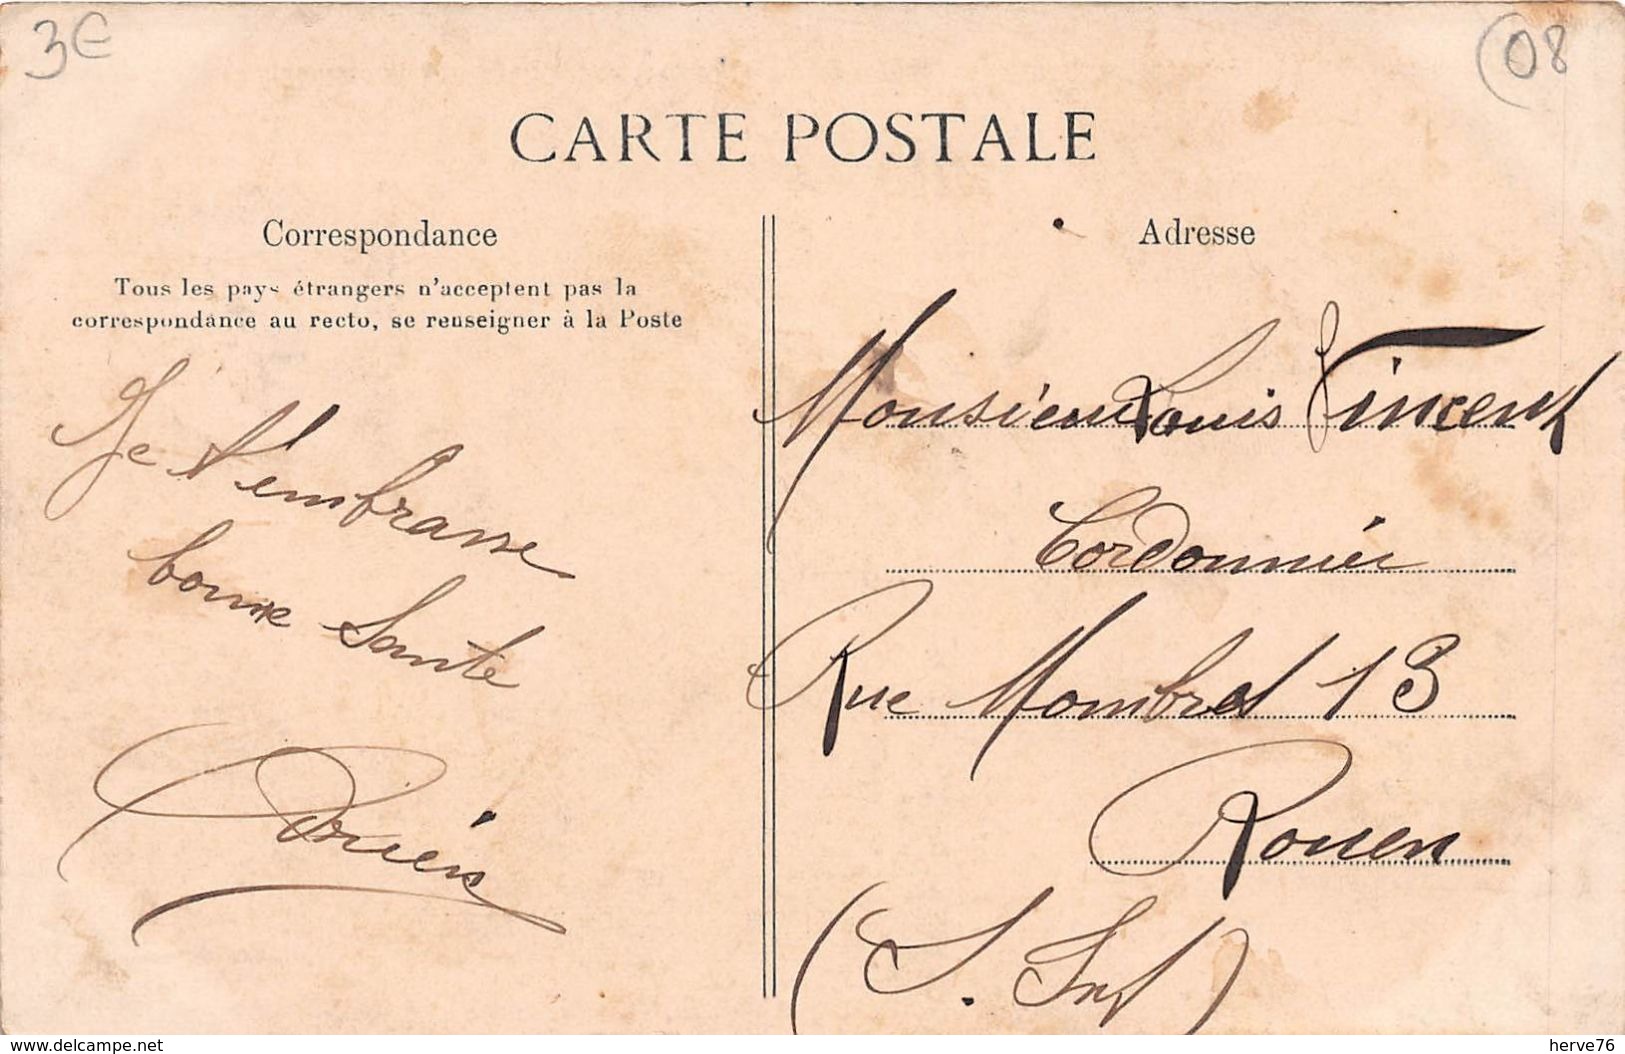 3€
(08
CARTE POSTALE
Correspondance
Tous les pays étrangers n'acceptent pas la
correspondance au recto, se renseigner à la Poste
Je t'embrasse
bonne Sante
Adresse
Monsieur Louis Vincent
Cordonnier
Rue 13
Rouen
(S. Inf)
www.delcampe.net
herve76